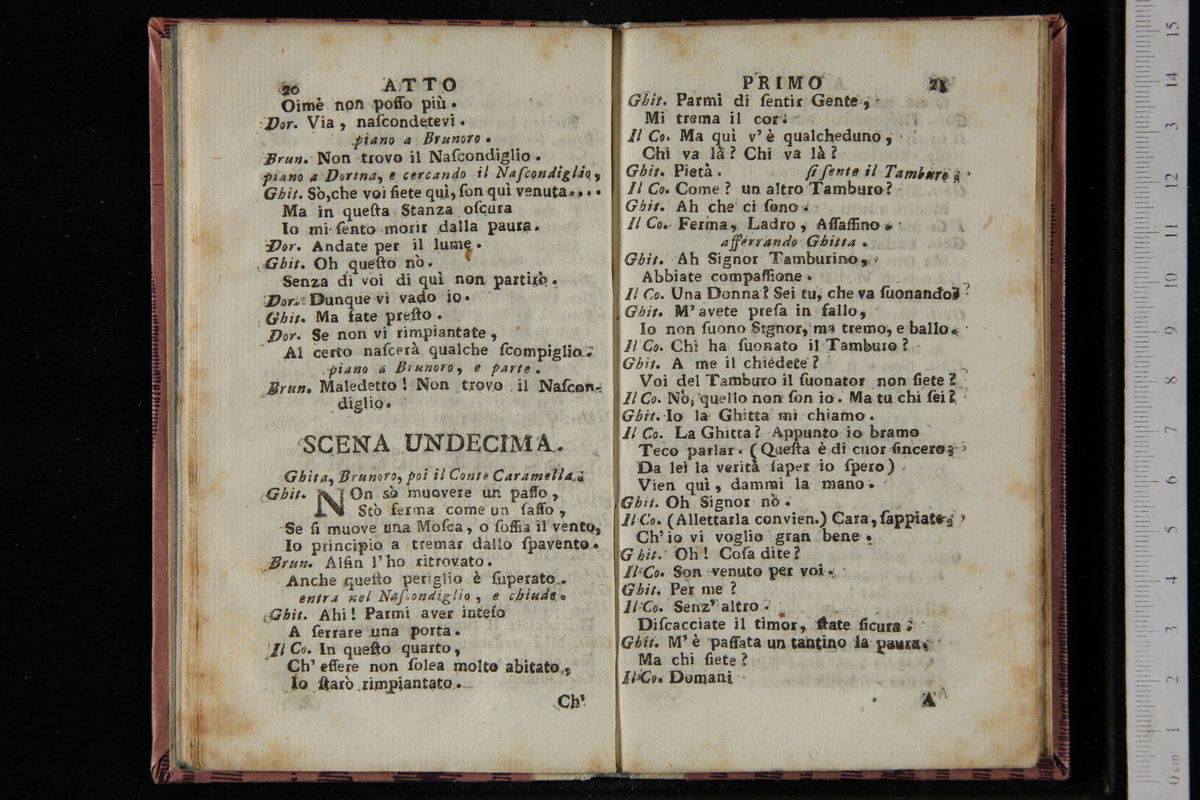 20 ATTO
Oimè non poſſo più.
Dor. Via, naſcondetevi.
piano a Brunoro.
Brun. Non trovo il Naſcondiglio.
piano a Dorina, e cercando il Naſcondiglio,
Ghit. Sò, che voi ſiete quì, ſon quì venuta....
Ma in queſta Stanza oſcura
Io mi ſento morir dalla paura.
Dor. Andate per il lume.
Ghit. Oh queſto nò.
Senza di voi di quì non partirò.
Dor. Dunque vi vado io.
Ghit. Ma fate preſto.
Dor. Se non vi rimpiantate,
Al certo naſcerà qualche ſcompiglio.
piano a Brunoro, e parte.
Brun. Maledetto! Non trovo il Naſcon-
diglio.
SCENA UNDECIMA.
Ghita, Brunoro, poi il Conte Caramella.
Ghit. NOn sò muovere un paſſo,
Stò ferma come un ſaſſo,
Se ſi muove una Moſca, o ſoffia il vento,
Io principio a tremar dallo ſpavento.
Brun. Alfin l'ho ritrovato.
Anche queſto periglio è ſuperato.
entra nel Naſcondiglio, e chiude.
Ghit. Ahi! Parmi aver inteſo
A ſerrare una porta.
Il Co. In queſto quarto,
Ch' eſſere non ſolea molto abitato,
Io ſtarò rimpiantato.
Ch'
PRIMO 21
Ghit. Parmi di ſentir Gente,
Mi trema il cor.
Il Co. Ma quì v' è qualcheduno,
Chi va là? Chi va là?
Ghit. Pietà. ſi ſente il Tamburo.
Il Co. Come? un altro Tamburo?
Ghit. Ah che ci ſono.
Il Co. Ferma, Ladro, Aſſaſſino.
afferrando Ghitta.
Ghit. Ah Signor Tamburino,
Abbiate compaſſione.
Il Co. Una Donna? Sei tu, che va ſuonando?
Ghit. M' avete preſa in fallo,
Io non ſuono Signor, ma tremo, e ballo.
Il Co. Chi ha ſuonato il Tamburo?
Ghit. A me il chiedete?
Voi del Tamburo il ſuonator non ſiete?
Il Co. Nò, quello non ſon io. Ma tu chi ſei?
Ghit. Io la Ghitta mi chiamo.
Il Co. La Ghitta? Appunto io bramo
Teco parlar. (Queſta è di cuor ſincero;
Da lei la verità ſaper io ſpero)
Vien quì, dammi la mano.
Ghit. Oh Signor nò.
Il Co. (Allettarla convien.) Cara, ſappiate,
Ch' io vi voglio gran bene.
Ghit. Oh! Coſa dite?
Il Co. Son venuto per voi.
Ghit. Per me?
Il Co. Senz' altro.
Diſcacciate il timor, ſtate ſicura.
Ghit. M' è paſſata un tantino la paura.
Ma chi ſiete?
Il Co. Domani
A
0 cm 1 2 3 4 5 6 7 8 9 10 11 12 13 14 15